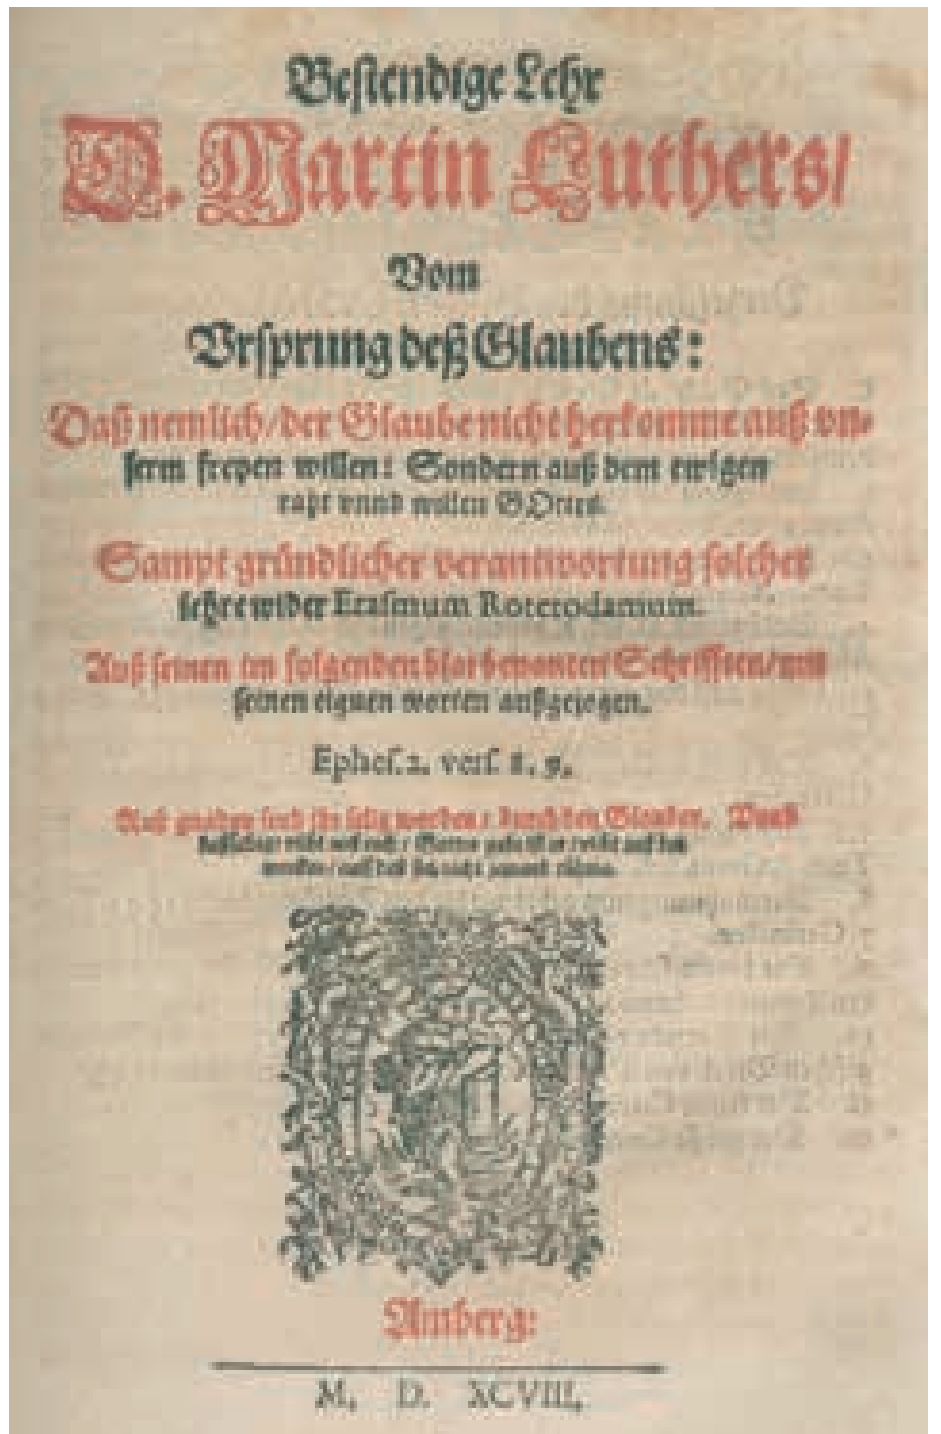 Bestendige Lehr
D. Martin Luthers/
Vom
Vrsprung deß Glaubens:
Daß nemlich/der Glaube nicht herkomme auß vn-
serm freyen willen: Sondern auß dem ewigen
raht vnnd willen GOttes.
Sampt gründlicher verantwortung solcher
lehre wider Erasmum Roterodamum.
Auß seinen im folgenden blat benanten Schrifften/mit
seinen eignen worten außgezogen.
Ephes. 2. vers. 8. 9.
Auß gnaden seid ihr selig worden/ durch den Glauben. Vnd
dasselbig nicht auß euch/ Gottes gabe ist es/ nicht auß den
wercken/ auff daß sich nicht jemand rühme.
Amberg:
M. D. XCVIII.